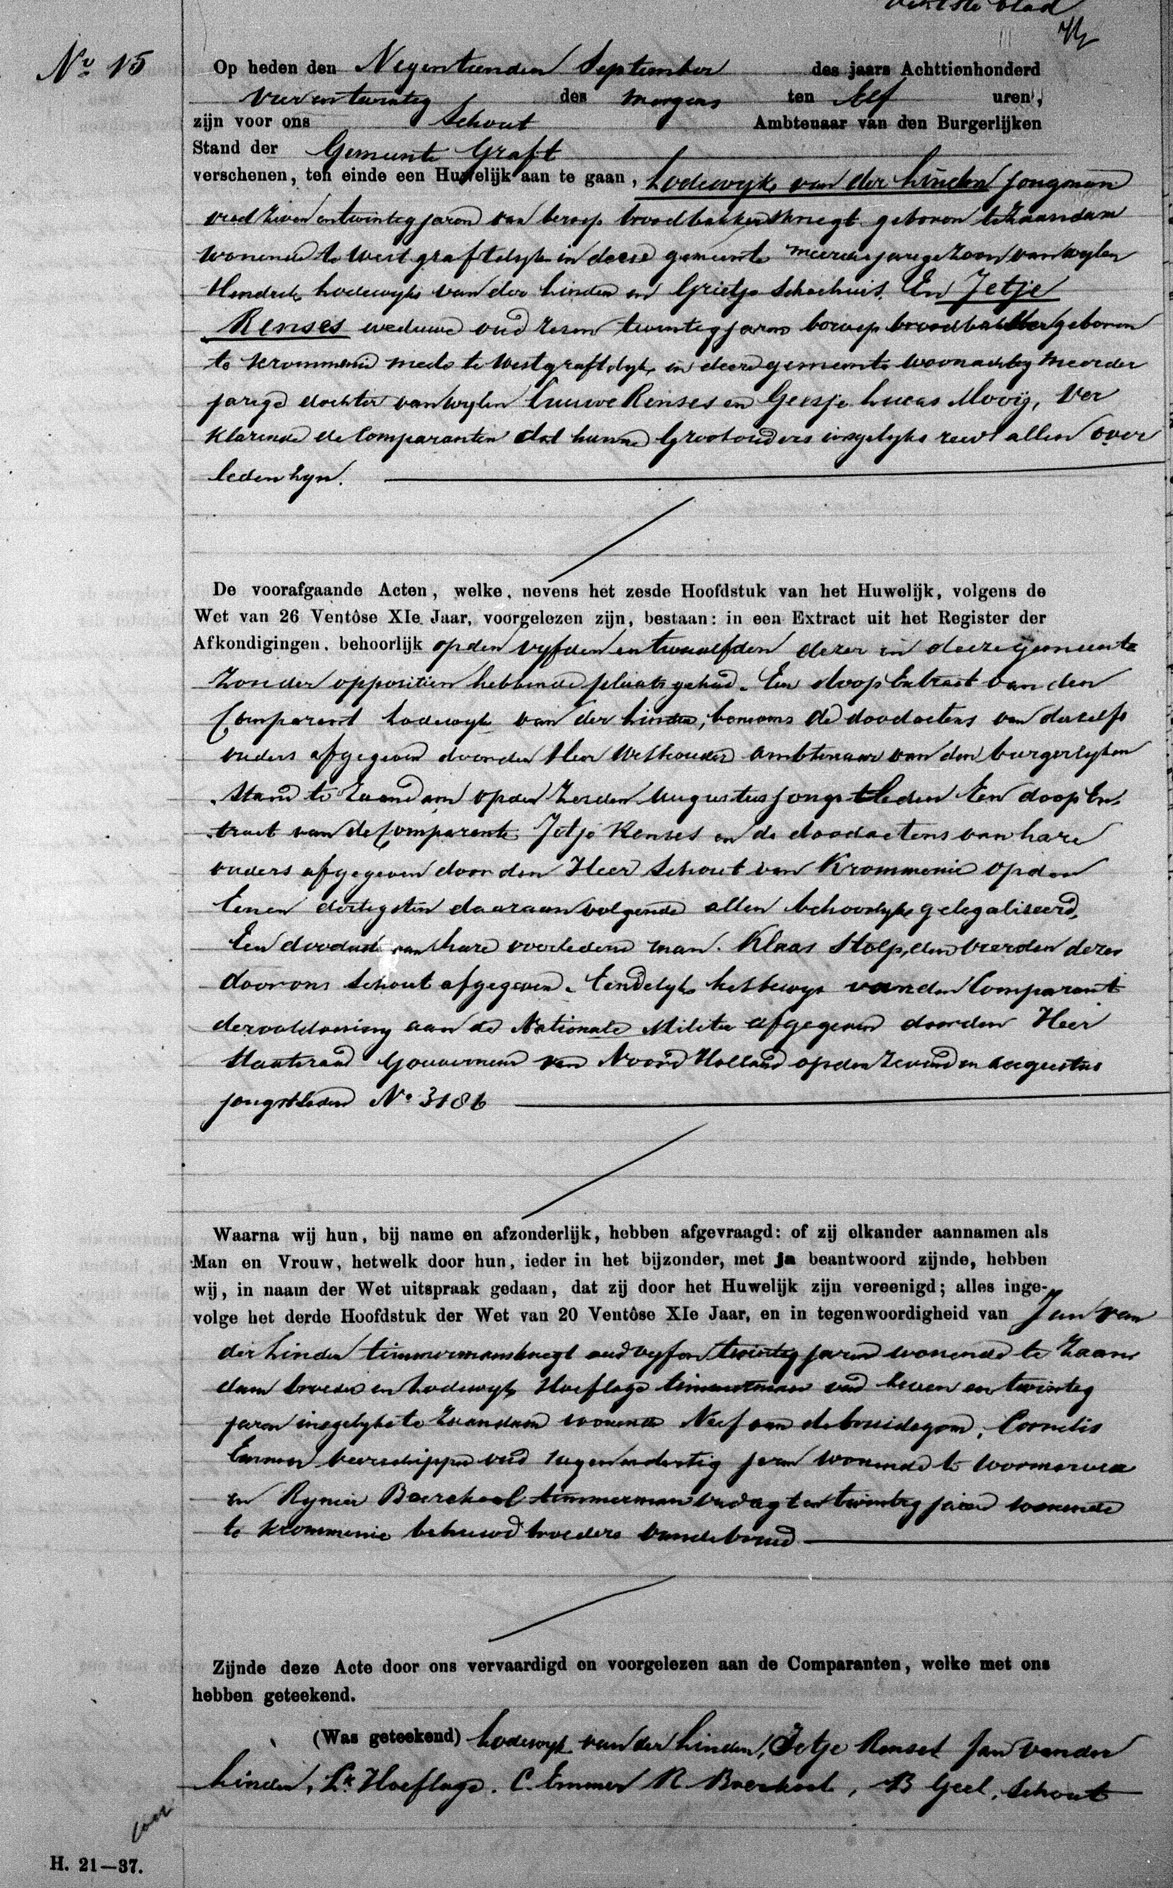 achtste blad
No 15
Op heden den Negentienden September des jaars Achttienhonderd
vierentwintig des morgens ten Elf uren,
zijn voor ons Schout Ambtenaar van den Burgerlijken
Stand der Gemeente Graft
verschenen, ten einde een Huwelijk aan te gaan, Lodewyk van der Linden jongman
oud zeven entwintig jaren van beroep broodbakkersknegt geboren te Zaandam
wonende te West graftdyk in deese gemeente meerderjarige zoon van wylen
Hendrik Lodewyk van der Linden en Grietje Schoehuis. En Jetje
Renses weduwe oud zesen twintig jaren beroep broodbakster geboren
te Krommenie mede te Westgraftdyk in deese gemeente woonachtig meerder
jarige dochter van wylen Louwe Renses en Geesje Lucas Mooij, Ver
klarende de Comparanten dat hunne Grootouders insgelyks reets allen over
leden zyn.
De voorafgaande Acten, welke, nevens het zesde Hoofdstuk van het Huwelijk, volgens de
Wet van 26 Ventôse XIe Jaar, voorgelezen zijn, bestaan: in een Extract uit het Register der
Afkondigingen, behoorlijk op den vyfden en twaalfden dezer in deeze gemeente
Zonder oppositien hebbende plaats gehad. Een doop Extract van den
Comparant Lodewyk van der Linden, benevens de doodactens van deszelfs
ouders afgegeven door den Heer Wethouder Ambtenaar van den burgerlyken
Stand te Zaandam op den Zesden Augustus jongstleden Een doop Ex
tract van de Comparante Jetje Renses en de doodactens van hare
ouders afgegeven door den Heer Schout van Krommenie op den
Eenen dertigsten daaraanvolgende allen behoorlyk gelegaliseerd,
Een doodacte van hare voorledene man Klaas Stolp, den vierden dezer
door ons Schout afgegeven. Eindelyk het bewys van den Comparant
der voldoening aan de Nationale Militie afgegeven door den Heer
Staatsraad Gouverneur van Noord Holland op den Zevenden augustus
jongstleden No 3186
Waarna wij hun, bij name en afzonderlijk, hebben afgevraagd: of zij elkander aannamen als
Man en Vrouw, hetwelk door hun, ieder in het bijzonder, met ja beantwoord zijnde, hebben
wij, in naam der Wet uitspraak gedaan, dat zij door het Huwelijk zijn vereenigd; alles inge-
volge het derde Hoofdstuk der Wet van 20 Ventôse XIe Jaar, en in tegenwoordigheid van Jan van
der Linden timmermansknegt oud vyfen twintig jaren wonende te Zaan
dam broeder en Lodewyk Hoeflage timmerman oud zeven en twintig
jaren insgelyks te Zaandam wonende Neef van de bruidegom, Cornelis
Emmer veerschipper oud negen en dertig jaren wonende te Wormerveer
en Rynier Boerekool timmerman oud agt en twintig jaren wonende
te Krommenie behuwd broeders van de bruid
Zijnde deze Acte door ons vervaardigd en voorgelezen aan de Comparanten, welke met ons
hebben geteekend.
(Was geteekend) Lodewyk van der Linden, Jetje Renses Jan van der
Linden, Lk Hoeflage. C. Emmer R Boerekool, B Geel, Schout
H. 21—37.